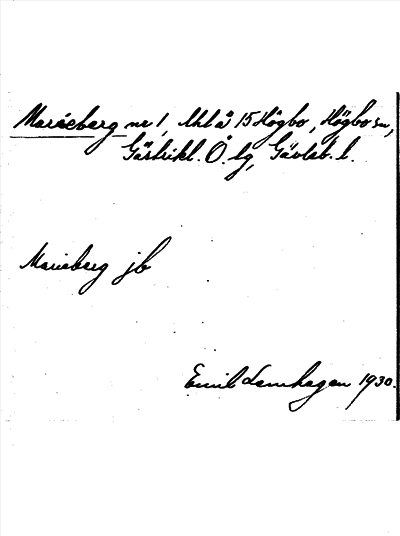 Marieberg nr 1, Uhl å 15 Högbo, Högbo sn,
Gästrikl. Ö. tg, Gävleb. l.
Marieberg jb
Emil Lamhagen 1930.